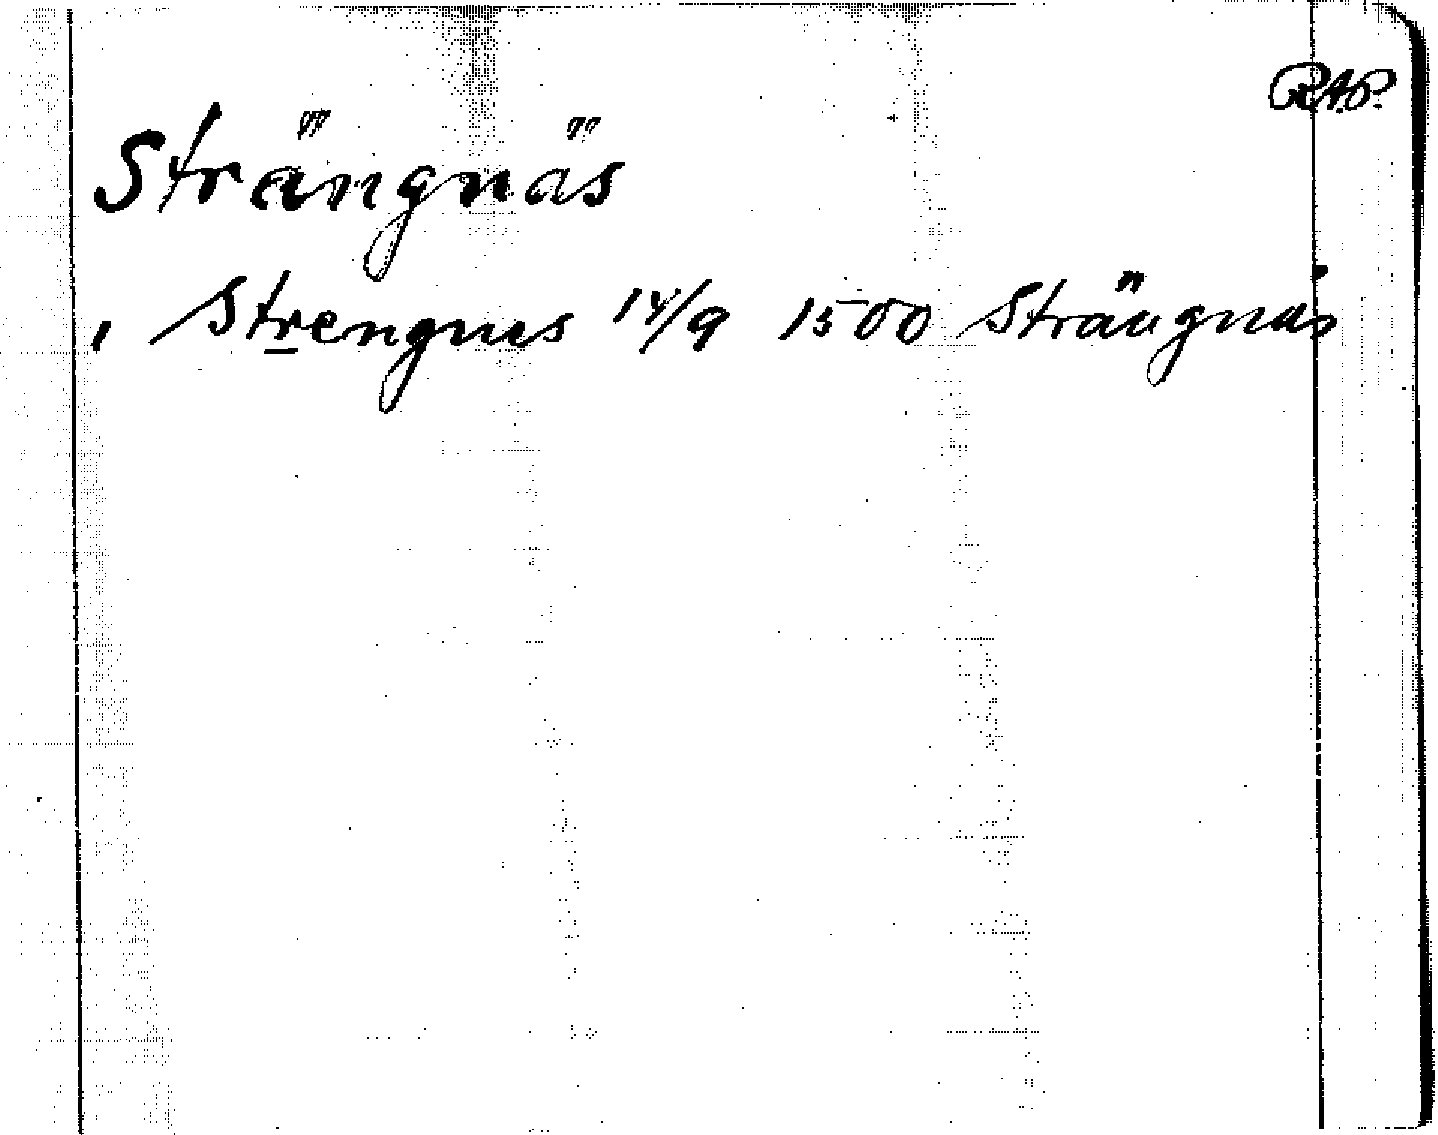 RAP.
Strängnäs
, Strengnes 14/9 1500 Strängnäs